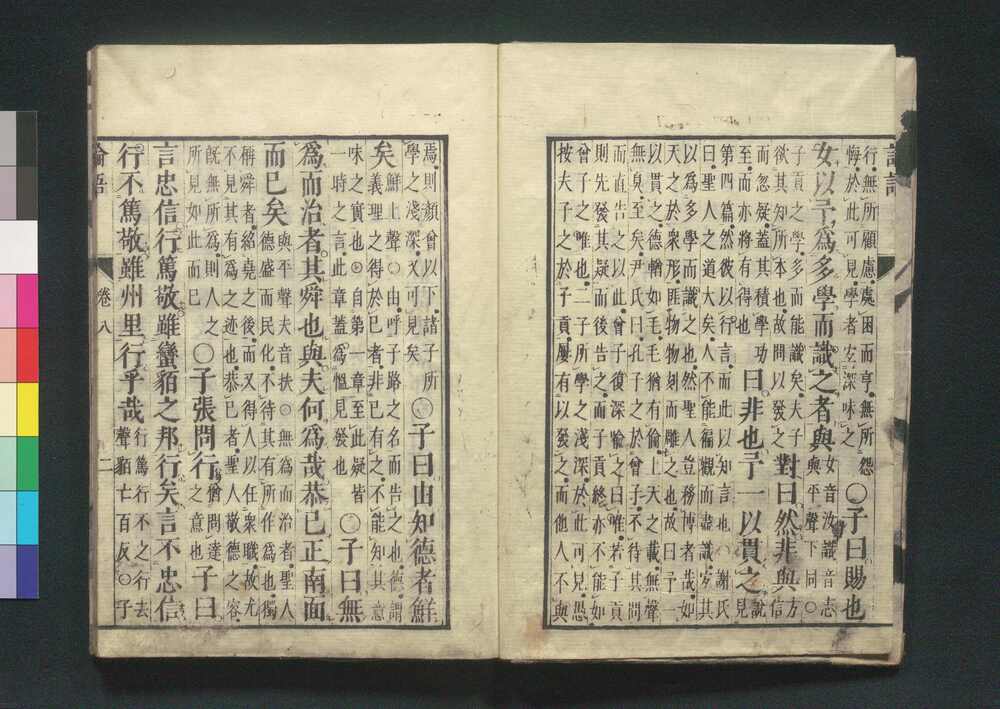 行無所顧慮處困而亨無所怨
悔於此可見學者宜深味之
〇子曰賜也
女以予爲多學而識之者與
女音汝識音志
與平聲下同〇
子貢之學多而能識矣夫子
欲其知所本也故問以發之
對曰然非與
方
信
而忽疑蓋其積學功
至而亦將有得也
曰非也予一以貫之
說
見
第四篇然彼以行言而此以知言也〇謝氏
曰聖人之道大矣人不能徧觀而盡識宜其
以爲多學而識之也然聖人豈務博者哉如
天之於衆形匪物物刻而雕之也故曰予一
以貫之德輶如毛毛猶有倫上天之載無聲
無臭至矣尹氏曰孔子之於曾子不待其問
而直告之以此曾子復深喻之曰唯若子貢
則先發其疑而後告之而子貢終亦不能如
曾子之唯也二子所學之淺深於此可見愚
按夫子之於子貢屢有以發之而他人不與
焉則顏曾以下諸子所
學之淺深又可見矣
〇子曰由知德者鮮
矣
鮮上聲〇由呼子路之名而告之也德謂
義理之得於己者非己有之不能知其意
味之實也〇自第一章至此疑皆
一時之言此章蓋爲慍見發也
〇子曰無
爲而治者其舜也與夫何爲哉恭己正南面
而已矣
與平聲夫音扶〇無爲而治者聖人
德盛而民化不待其有所作爲也獨
稱舜者紹堯之後而又得人以任衆職故尤
不見其有爲之迹也恭己者聖人敬德之容
既無所爲則人之
所見如此而已
〇子張問行
猶問達
之意也
子曰
言忠信行篤敬雖蠻貊之邦行矣言不忠信
行不篤敬雖州里行乎哉
行篤行不之行去
聲貊亡百反〇子
論語
卷八
二